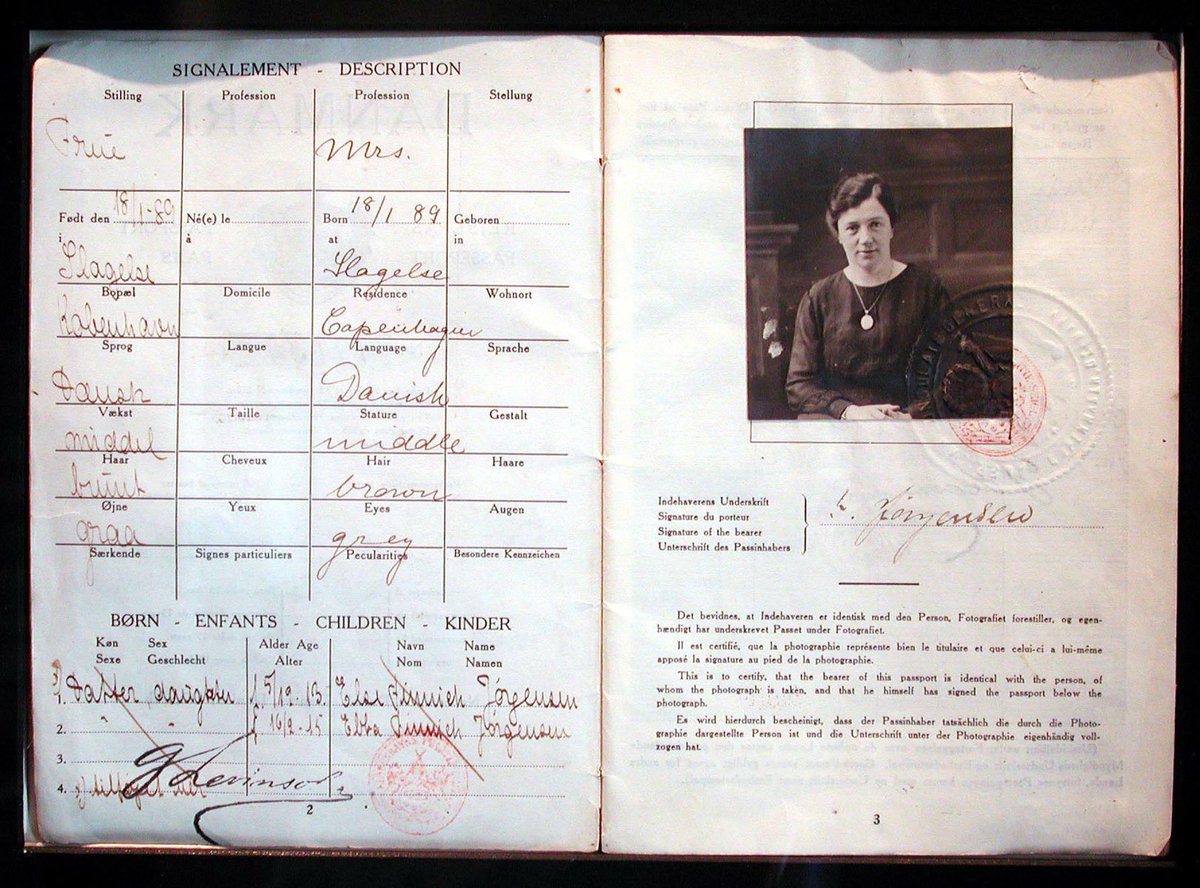 SIGNALEMENT - DESCRIPTION
Stilling Profession Profession Stellung
Frue Mrs.
Født den 18/1-89 Né(e) le Born 18/1 89 Geboren
i à at in
Slagelse Slagelse
Bopæl Domicile Residence Wohnort
København Copenhagen
Sprog Langue Language Sprache
Dansk Danish
Vækst Taille Stature Gestalt
middel middle
Haar Cheveux Hair Haare
brunt brown
Øjne Yeux Eyes Augen
graa grey
Særkende Signes particuliers Pecularities Besondere Kennzeichen
BØRN - ENFANTS - CHILDREN - KINDER
Køn Sex Alder Age Navn Name
Sexe Geschlecht Alter Nom Namen
1. Datter daughter f. 5/12-13 Else Jørgensen
2. " " f. 16/2-15 Ebba Jørgensen
3.
4.
G Levinson
2
Indehaverens Underskrift
Signature du porteur
Signature of the bearer
Unterschrift des Passinhabers
Jørgensen
Det bevidnes, at Indehaveren er identisk med den Person, Fotografiet forestiller, og egen-
hændigt har underskrevet Passet under Fotografiet.
Il est certifié, que la photographie représente bien le titulaire et que celui-ci a lui-même
apposé la signature au pied de la photographie.
This is to certify, that the bearer of this passport is identical with the person, of
whom the photograph is taken, and that he himself has signed the passport below the
photograph.
Es wird hierdurch bescheinigt, dass der Passinhaber tatsächlich die durch die Photo-
graphie dargestellte Person ist und die Unterschrift unter der Photographie eigenhändig voll-
zogen hat.
3